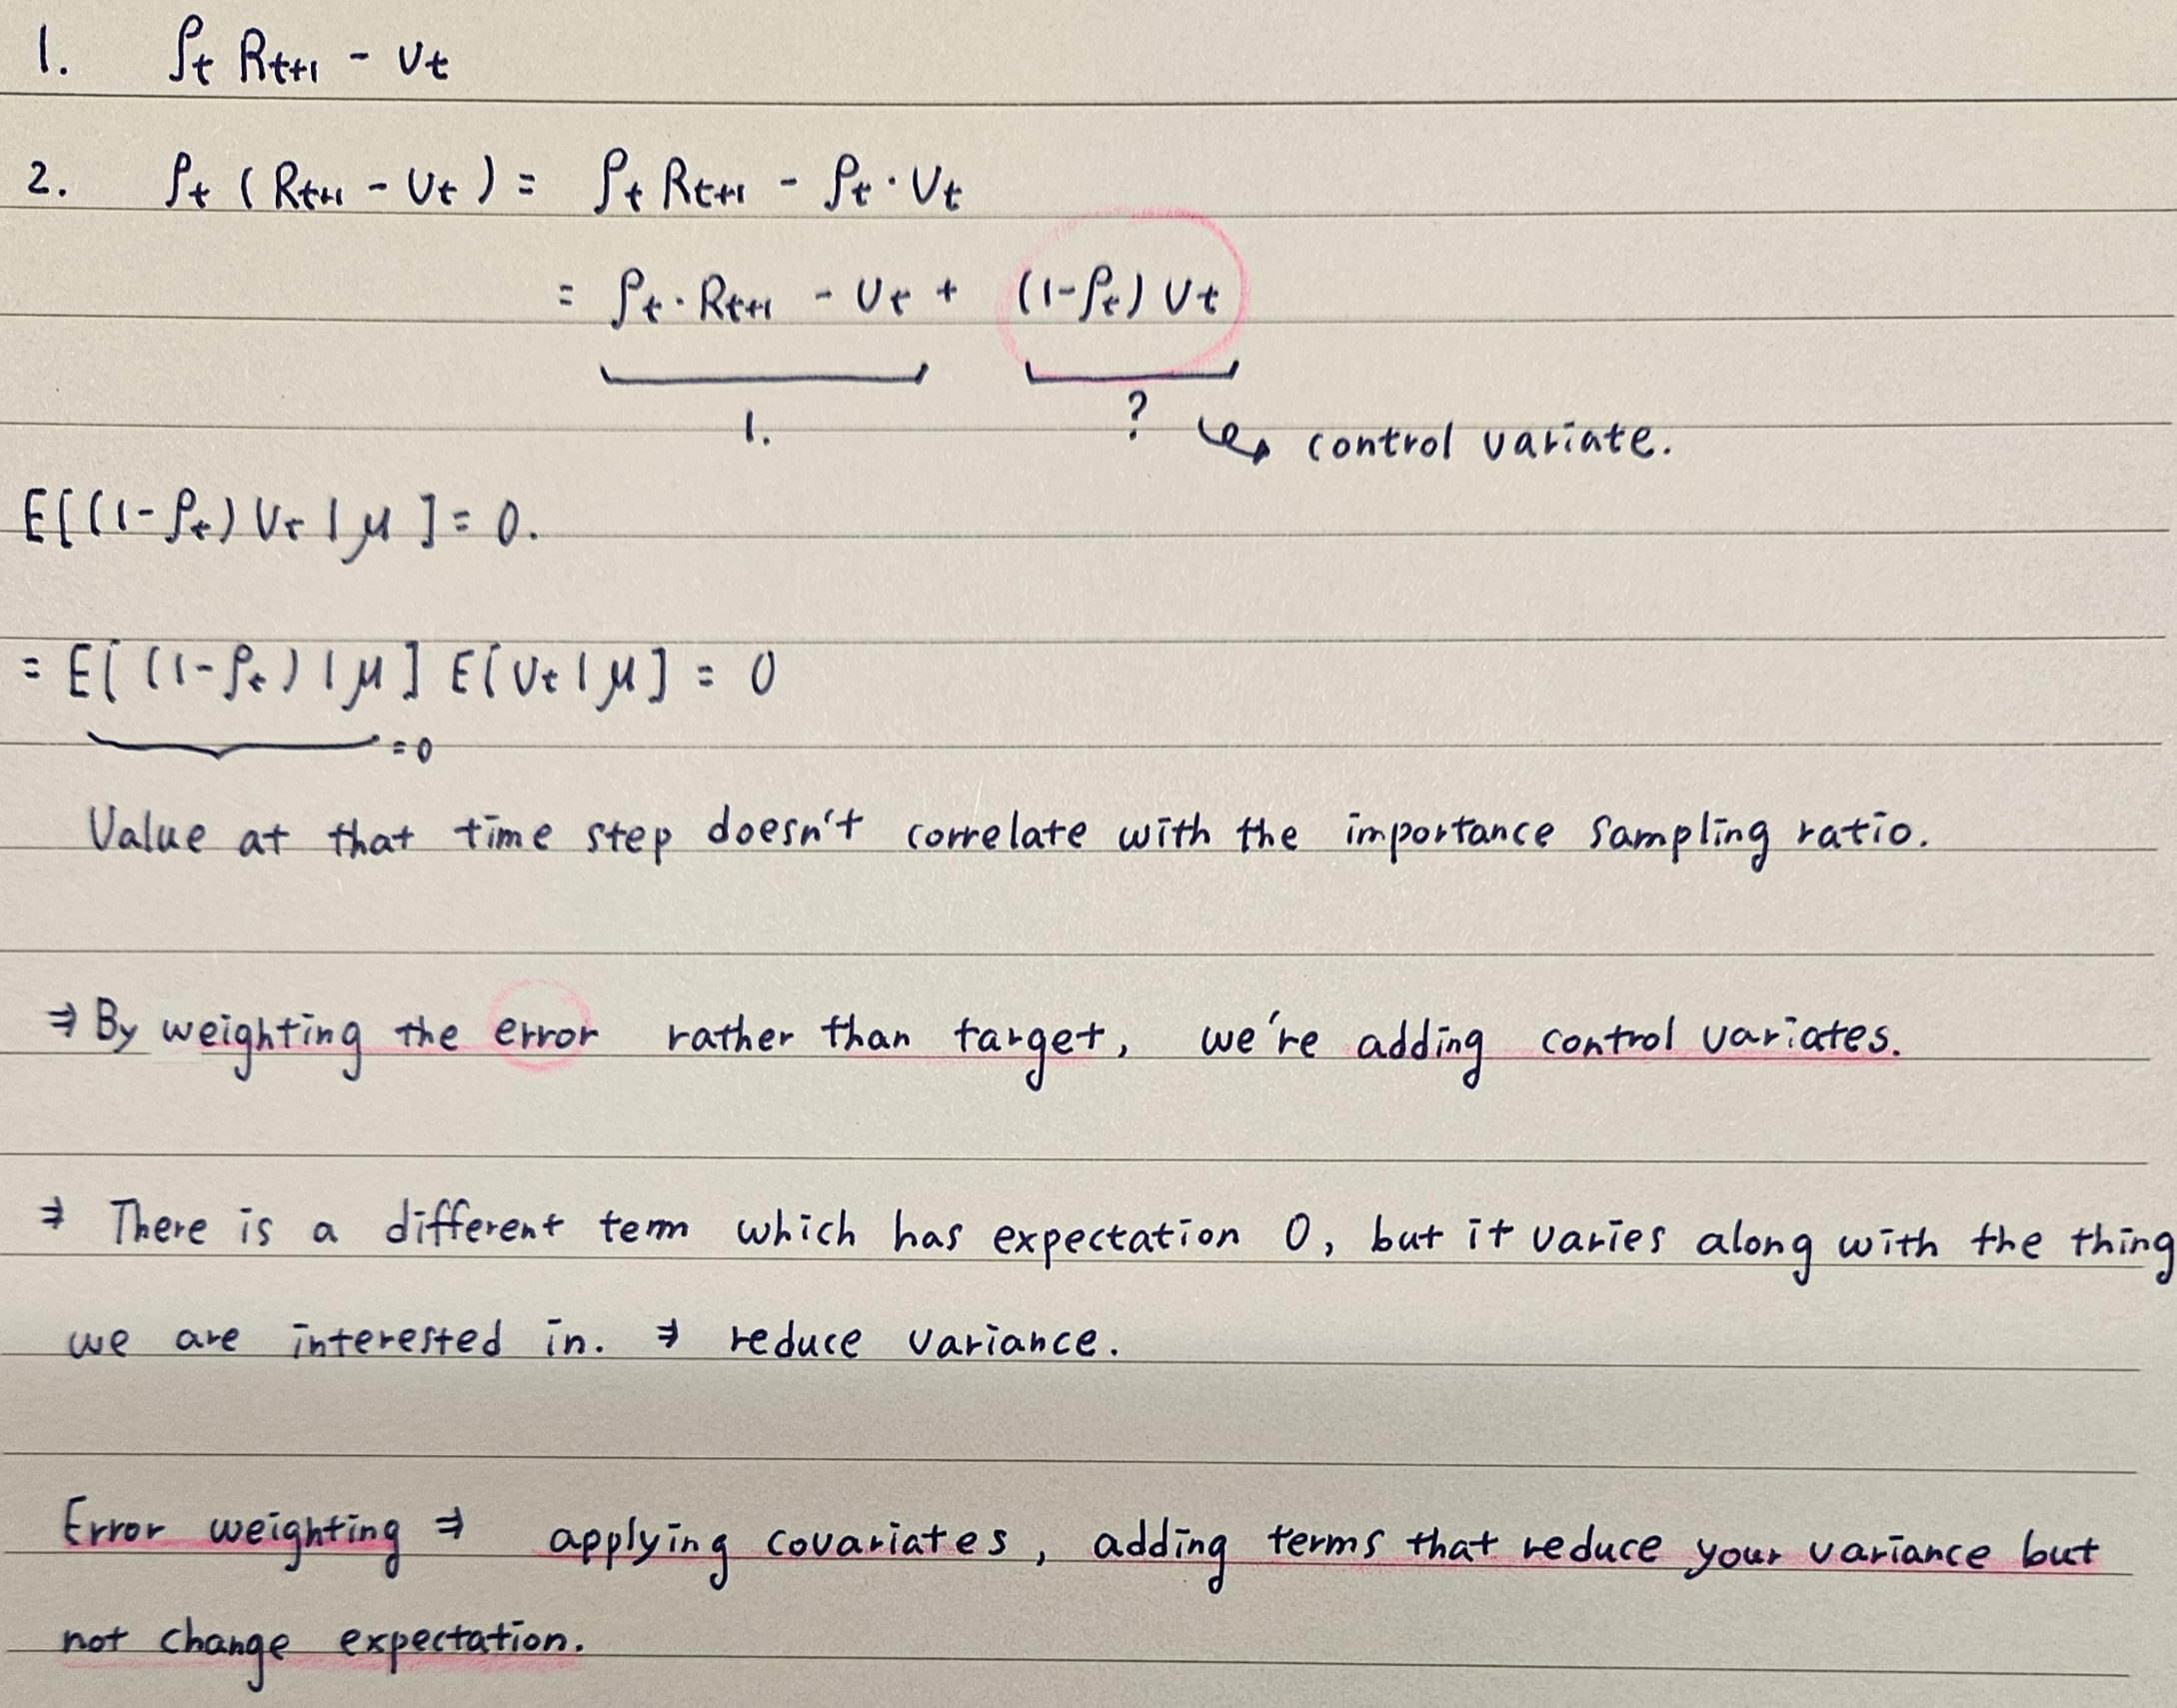 1. ρt Rt+1 - vt
2. ρt (Rt+1 - vt) = ρt Rt+1 - ρt · vt
= ρt · Rt+1 - vt + (1-ρt) vt
1. ? ↪ control variate.
E[(1-ρt) vt | μ] = 0.
= E[(1-ρt) | μ] E[vt | μ] = 0
= 0
Value at that time step doesn't correlate with the importance sampling ratio.
⇒ By weighting the error rather than target, we're adding control variates.
⇒ There is a different term which has expectation 0, but it varies along with the thing
we are interested in. ⇒ reduce variance.
Error weighting ⇒ applying covariates, adding terms that reduce your variance but
not change expectation.